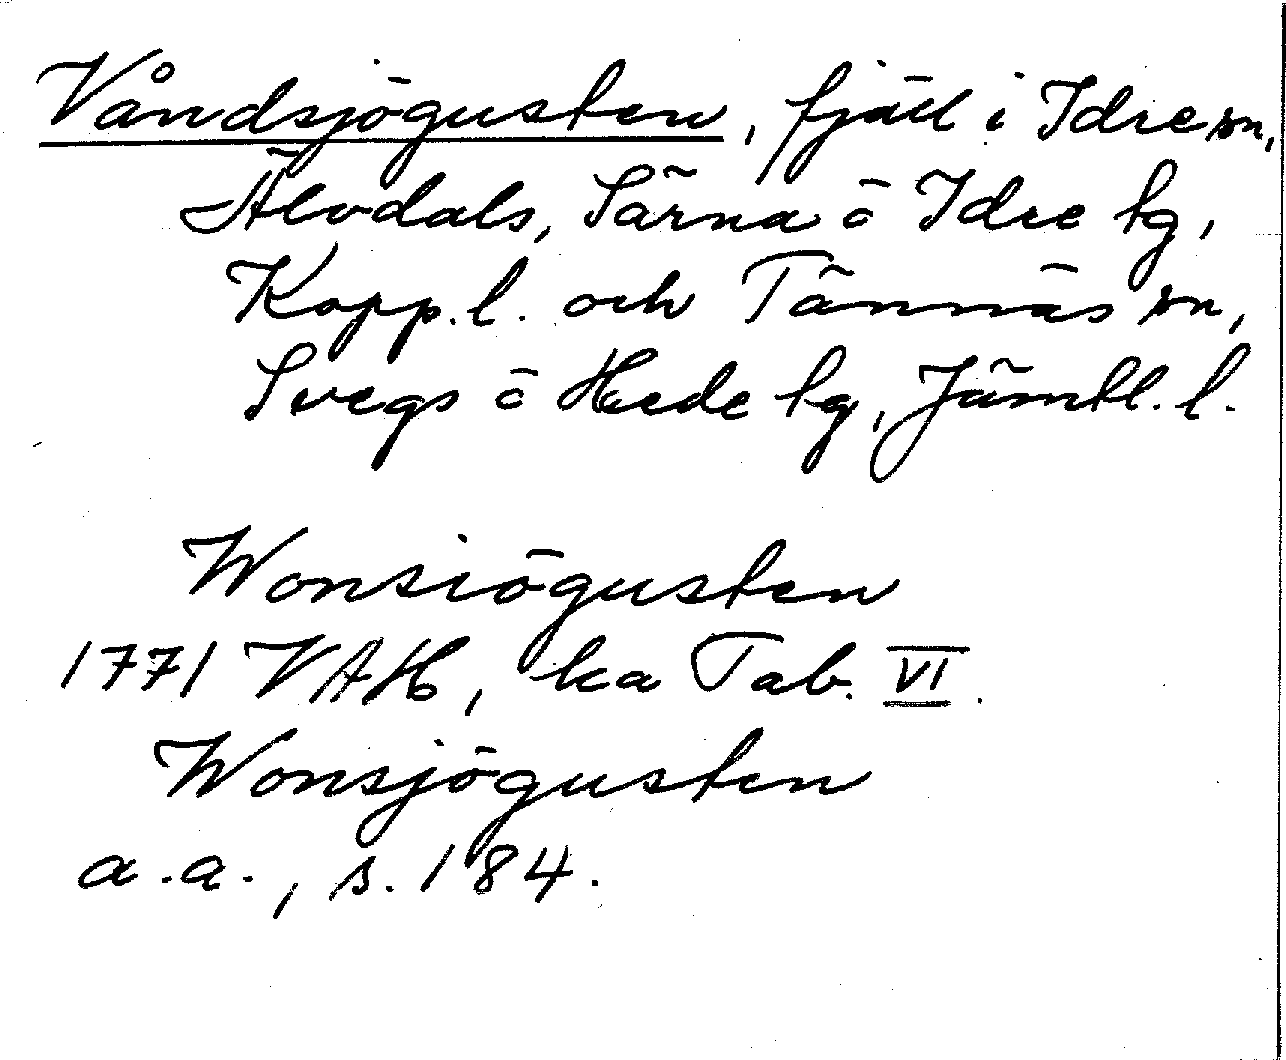 Våndsjögusten, fjäll i Idre sn,
Älvdals, Särna ö Idre tg,
Kopp.l. och Tännäs sn,
Svegs ö Hede tg, Jämtl. l.
Wonsiögusten
1771 VAH, ka Tab. VI.
Wonsjögusten
a.a., s. 184.